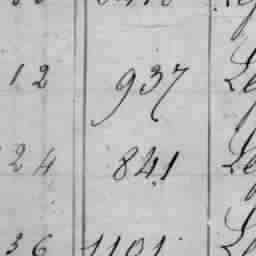 12 937 Le
24 841 Le
36 1101 Le